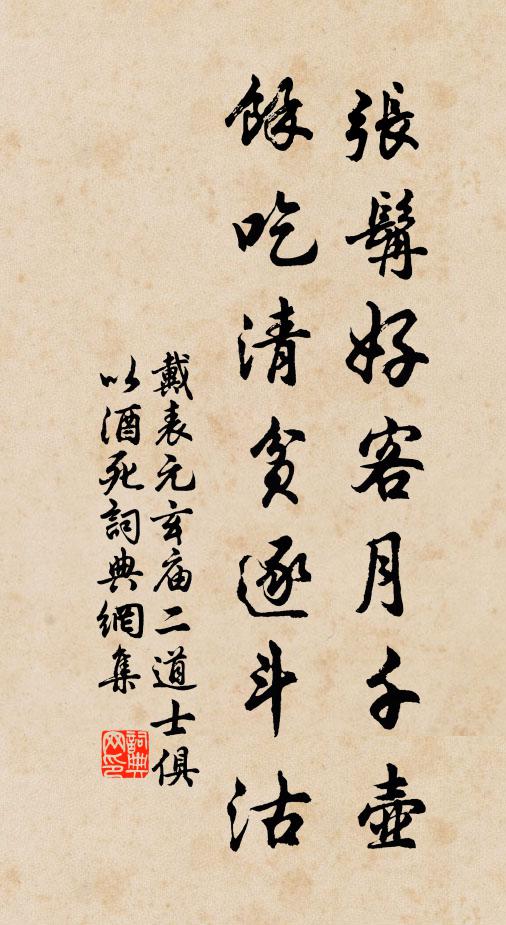 張髯好客月千壺
餘吃清貧逐斗沽
戴表元玄庙二道士俱
以酒死詞典網集
詞典
网印